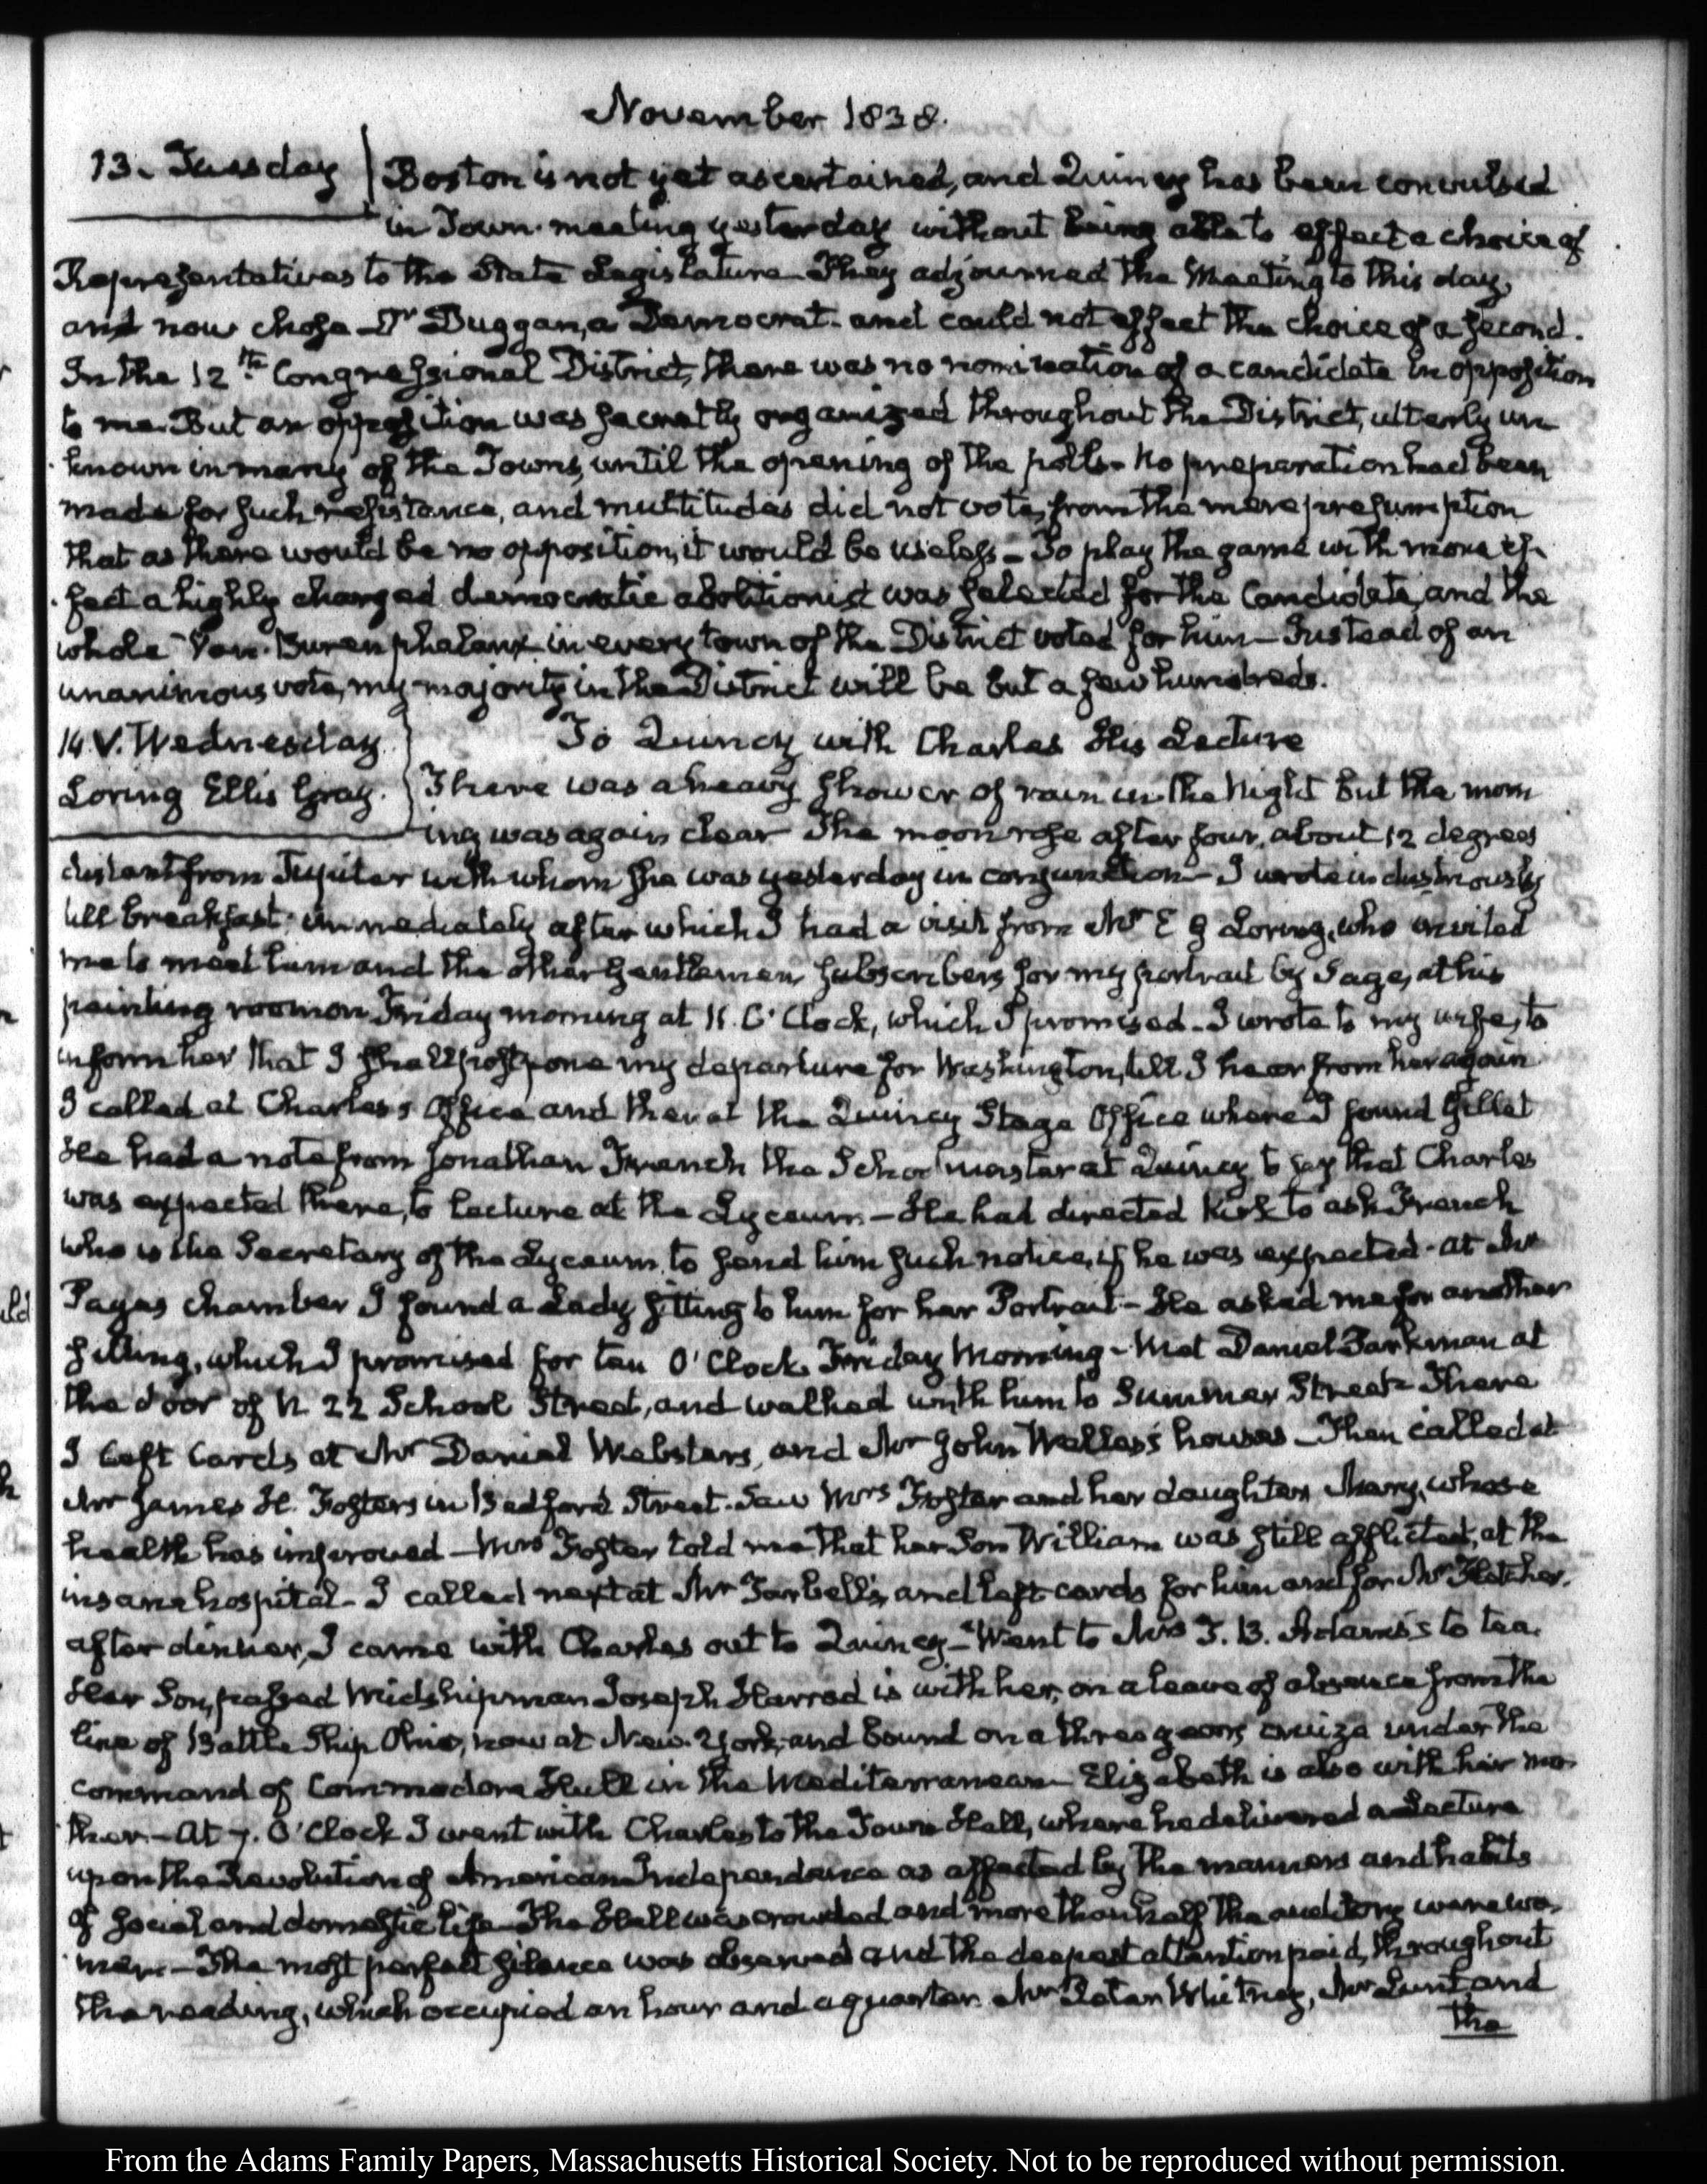 November 1838.
13. Tuesday
Boston is not yet ascertained, and Quincy has been convulsed
in Town-meeting yesterday without being able to effect a choice of
Representatives to the State Legislature They adjourned the Meeting to this day,
and now chose Dr Duggan, a Democrat. and could not effect the choice of a second.
In the 12th Congressional District, there was no nomination of a candidate in opposition
to me. But an opposition was secretly organized throughout the District, utterly un
known in many of the Towns, until the opening of the polls. No preparation had been
made for such resistance, and multitudes did not vote, from the mere presumption
that as there would be no opposition, it would be useless - To play the game with more ef-
fect a highly charged democratic abolitionist was selected for the Candidate, and the
whole Van-Buren phalanx in every town of the District voted for him - Instead of an
unanimous vote, my majority in the District will be but a few hundreds.
14. V. Wednesday.
Loring Ellis Gray.
To Quincy with Charles His Lecture
There was a heavy shower of rain in the Night but the morn
ing was again clear The moon rose after four, about 12 degrees
distant from Jupiter with whom she was yesterday in conjunction - I wrote industriously
till breakfast: immediately after which I had a visit from Mr E G Loring, who invited
me to meet him and the other Gentlemen, subscribers for my portrait by Page, at his
painting room on Friday morning at 11. O'Clock, which I promised - I wrote to my wife, to
inform her that I shall postpone my departure for Washington, till I hear from her again
I called at Charles's Office and then at the Quincy Stage Office where I found Gillet
He had a note from Jonathan French the Schoolmaster at Quincy to say that Charles
was expected there, to lecture at the Lyceum - He had directed Kirk to ask French
who is the Secretary of the Lyceum, to send him such notice, if he was expected - at Mr
Pages chamber I found a Lady sitting to him for her Portrait - He asked me for another
sitting, which I promised for ten O'Clock Friday Morning - Met Daniel Parkman at
the door of N. 22 School Street, and walked with him to Summer Street There
I left Cards at Mr Daniel Websters, and Mr John Welles's houses - Then called at
Mr James H. Fosters in Bedford Street. Saw Mrs Foster and her daughter Mary, whose
health has improved - Mrs Foster told me that her Son William was still afflicted, at the
insane hospital - I called next at Mr Tarbell's, and left cards for him and for Mr Fletcher.
after dinner, I came with Charles out to Quincy - Went to Mrs T. B. Adams's to tea.
Her Son, passed Midshipman Joseph Harrod is with her, on a leave of absence from the
line of Battle Ship Ohio, now at New-York, and bound on a three years cruize under the
command of Commodore Hull in the Mediterranean Elizabeth is also with her mo-
ther. - At 7. O'Clock I went with Charles to the Town Hall, where he delivered a Lecture
upon the Revolution of American Independence as affected by the manners and habits
of social and domestic life The Hall was crowded and more than half the auditory were wo-
men. - The most perfect silence was observed and the deepest attention paid, throughout
the reading, which occupied an hour and a quarter. Mr Peter Whitney, Mr Lunt, and
the
From the Adams Family Papers, Massachusetts Historical Society. Not to be reproduced without permission.